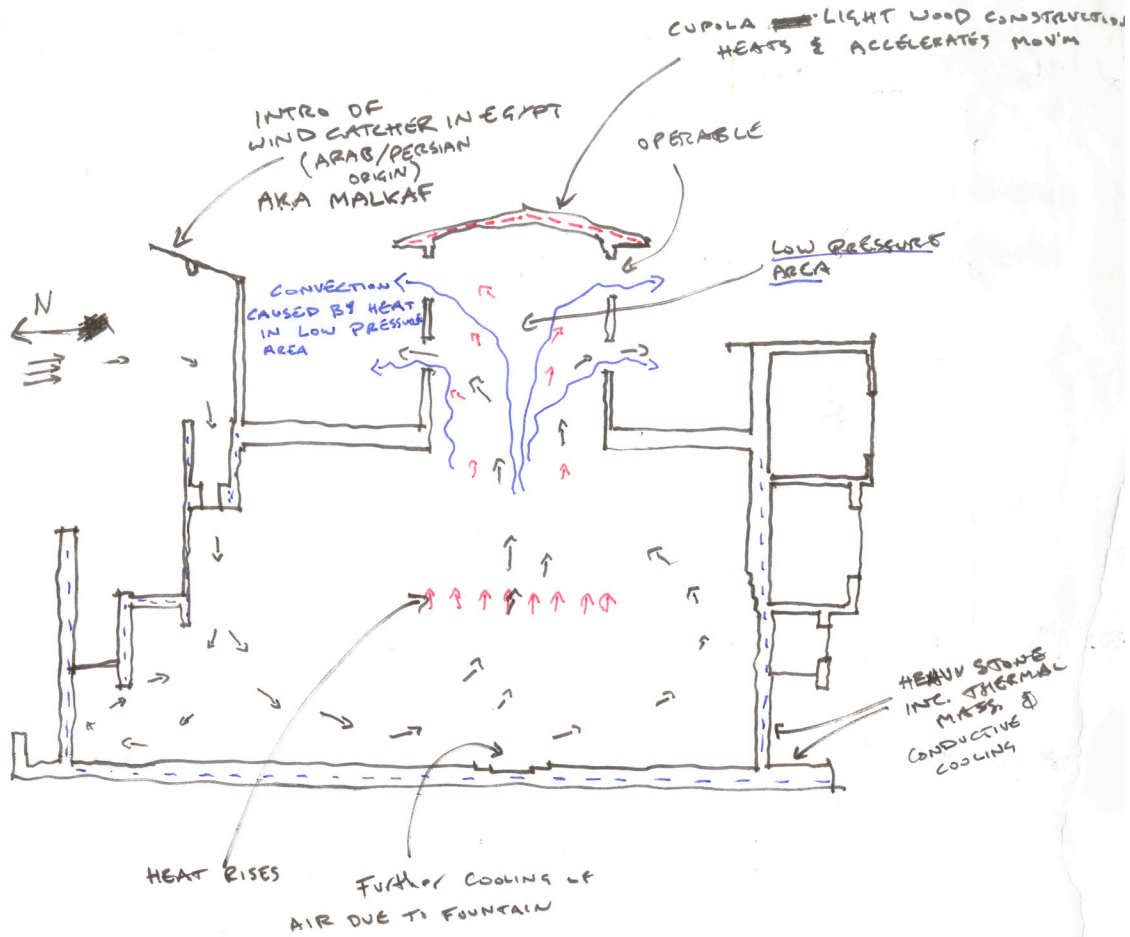 CUPOLA LIGHT WOOD CONSTRUCTION
HEATS & ACCELERATES MOV'M
INTRO OF
WIND CATCHER IN EGYPT
(ARAB/PERSIAN
ORIGIN)
AKA MALKAF
OPERABLE
LOW PRESSURE
AREA
CONVECTION
CAUSED BY HEAT
IN LOW PRESSURE
AREA
N
HEAVY STONE
INC. THERMAL
MASS &
CONDUCTIVE
COOLING
HEAT RISES
Further COOLING OF
AIR DUE TO FOUNTAIN